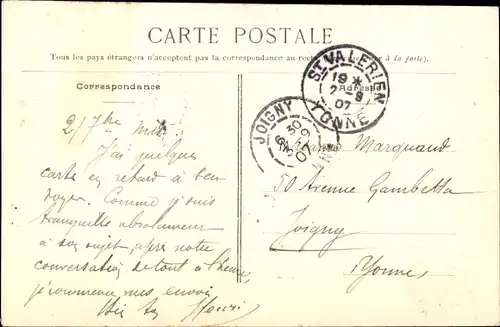 CARTE POSTALE
Tous les pays étrangers n'acceptent pas la correspondance au recto à la poste).
Correspondance
Adresse
ST VALERIEN
19 *
2-9
07
YONNE
JOIGNY
30
07
2/7bre
J'ai quelques
carte en retard à
Comme je suis
tranquille absolument
à son sujet, après notre
conversation de tout à l'heure,
je commence mes envois
Henri
Marquand
50 Avenue Gambetta
Joigny
Yonne